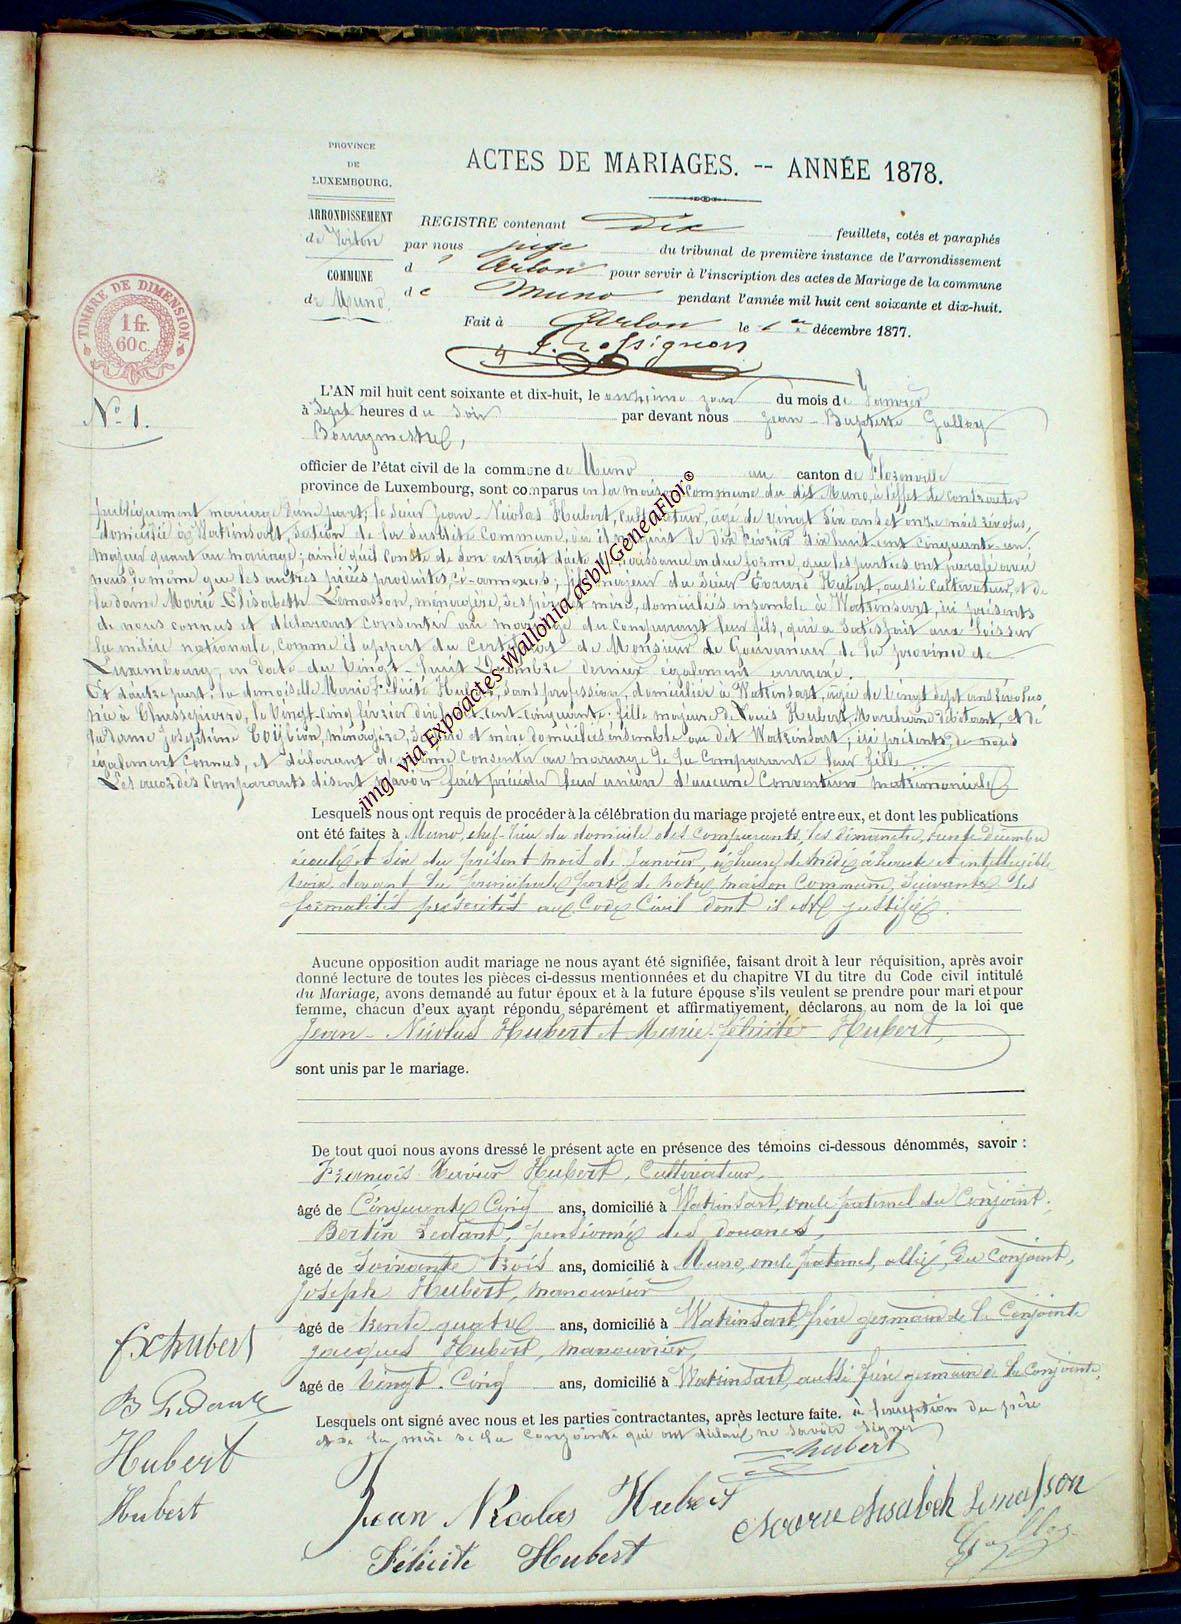 PROVINCE
DE
LUXEMBOURG.
ARRONDISSEMENT
de Virton
COMMUNE
de Muno
TIMBRE DE DIMENSION.
1 fr.
60 c.
ACTES DE MARIAGES. -- ANNÉE 1878.
REGISTRE contenant Dix feuillets, cotés et paraphés
par nous juge du tribunal de première instance de l'arrondissement
d' Arlon pour servir à l'inscription des actes de Mariage de la commune
de Muno pendant l'année mil huit cent soixante et dix-huit.
Fait à Arlon le 1er décembre 1877.
Rossignon
N° 1.
L'AN mil huit cent soixante et dix-huit, le onzième jour du mois de Janvier
à Sept heures du Soir par devant nous Jean-Baptiste
Bourgmestre,
officier de l'état civil de la commune de Muno au canton de Florenville
province de Luxembourg, sont comparus en la maison Commune du dit Muno, à l'effet de Contracter
publiquement mariage d'une part; le sieur Jean-Nicolas Hubert, Cultivateur, âgé de vingt six ans et onze mois révolus,
domicilié à Watrinsart, section de la susdite Commune, où il naquit le dix février dix huit cent cinquante-un;
majeur quant au mariage; ainsi qu'il conste de son extrait d'acte de naissance en due forme, que les parties ont parafé avec
nous de même que les autres pièces produites, ci-annexées; fils majeur du sieur Hubert, aussi Cultivateur, et de
la dame Marie Elisabeth Lemasson, ménagère, ses père et mère, domiciliés ensemble à Watrinsart, ici présents
de nous connus et déclarant consentir au mariage du Comparant leur fils, qui a satisfait aux Lois sur
la milice nationale, comme il appert du Certificat de Monsieur le Gouverneur de la province de
Luxembourg, en date du Vingt-huit Décembre dernier également annexé.
Et d'autre part: la demoiselle Marie Félicité Hubert, sans profession, domiciliée à Watrinsart, âgée de Vingt sept ans révolus
née à Chassepierre, le Vingt-cinq février dix huit-cent-cinquante; fille majeure de Louis Hubert, Marchand, et de
la dame Joséphine, ménagère, ses père et mère domiciliés ensemble au dit Watrinsart; ici présents, de nous
également Connus, et déclarant de même Consentir au mariage de la Comparante leur fille.
Lesquels Comparants disent n'avoir fait précéder leur union d'aucune Convention matrimoniale
Lesquels nous ont requis de procéder à la célébration du mariage projeté entre eux, et dont les publications
ont été faites à Muno, chef-lieu du domicile des Comparants, les Dimanche, trente Décembre
écoulé et Six du présent mois de Janvier, à l'heure de midi à haute et intelligible
voix, devant la principale porte de notre maison Commune, Suivant les
formalités prescrites au Code Civil dont il est justifié.
Aucune opposition audit mariage ne nous ayant été signifiée, faisant droit à leur réquisition, après avoir
donné lecture de toutes les pièces ci-dessus mentionnées et du chapitre VI du titre du Code civil intitulé
du Mariage, avons demandé au futur époux et à la future épouse s'ils veulent se prendre pour mari et pour
femme, chacun d'eux ayant répondu séparément et affirmativement, déclarons au nom de la loi que
Jean-Nicolas Hubert et Marie-Félicité Hubert,
sont unis par le mariage.
De tout quoi nous avons dressé le présent acte en présence des témoins ci-dessous dénommés, savoir :
François Xavier Hubert, Cultivateur,
âgé de Cinquante Cinq ans, domicilié à Watrinsart, oncle paternel du Conjoint.
Bertin Ledant, pensionné des douanes,
âgé de Soixante trois ans, domicilié à Muno, oncle paternel, allié, du Conjoint,
Joseph Hubert, manouvrier
âgé de trente quatre ans, domicilié à Watrinsart, frère germain de la Conjointe
Jacques Hubert, manouvrier,
âgé de Vingt-Cinq ans, domicilié à Watrinsart, aussi frère germain de la Conjointe,
Lesquels ont signé avec nous et les parties contractantes, après lecture faite. à l'exception du père
et de la mère de la Conjointe qui ont déclaré ne savoir signer
fx hubert
B Ledant
Hubert
Hubert
hubert
Jean Nicolas Hubert
Marie elisabeth Lemasson
Félicité Hubert
img via Expoactes-Wallonia asbl/GeneaFlor©